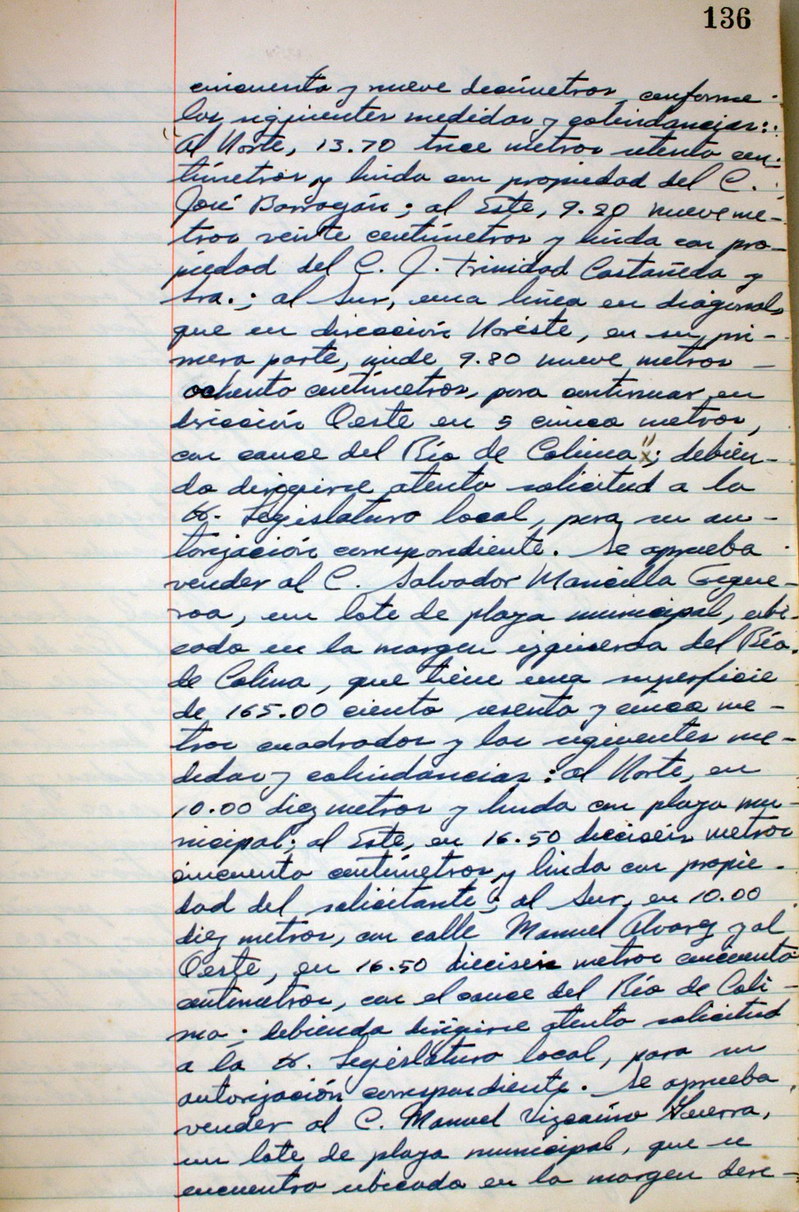 136
cincuenta y nueve decímetros, conforme
los siguientes medidas y colindancias:
"Al Norte, 13.70 trece metros setenta cen-
tímetros y linda con propiedad del C.
José Barragán; al Este, 9.20 nueve me-
tros veinte centímetros y linda con pro-
piedad del C. J. Trinidad Castañeda y
Sra.; al Sur, una línea en diagonal
que en dirección Noreste, en su pri-
mera parte, mide 9.80 nueve metros -
ochenta centímetros, para continuar en
dirección Oeste en 5 cinco metros,
con cauce del Río de Colima"; debien-
do dirigirse atenta solicitud a la
H. Legislatura local, para su au-
torización correspondiente. Se aprueba
vender al C. Salvador Mancilla Figue-
roa, un lote de playa municipal, ubi-
cado en la margen izquierda del Río
de Colima, que tiene una superficie
de 165.00 ciento sesenta y cinco me-
tros cuadrados y las siguientes me-
didas y colindancias: al Norte, en
10.00 diez metros y linda con playa mu-
nicipal; al Este, en 16.50 dieciseis metros
cincuenta centímetros y linda con propie-
dad del solicitante; al Sur, en 10.00
diez metros, con calle Manuel Alvarez y al
Oeste, en 16.50 dieciseis metros cincuenta
centímetros, con el cauce del Río de Coli-
ma; debiendo dirigirse atenta solicitud
a la H. Legislatura local, para su
autorización correspondiente. Se aprueba
vender al C. Manuel Vizcaíno Guerra,
un lote de playa municipal, que se
encuentra ubicado en la margen dere-